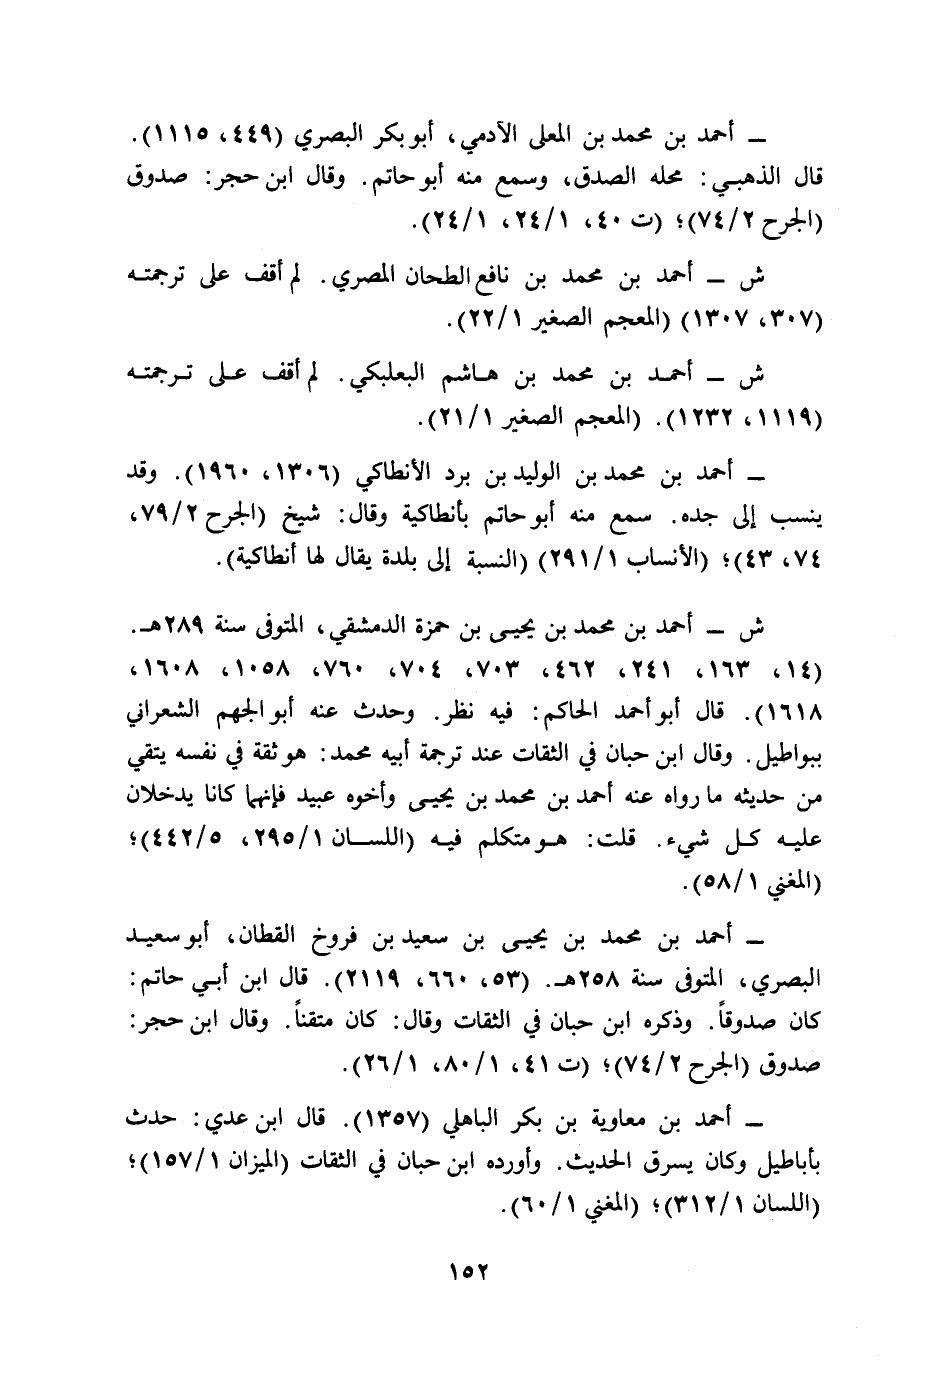 ــ أحمد بن محمد بن المعلى الآدمي، أبو بكر البصري (٤٤٩، ١١١٥).
قال الذهبي: محله الصدق، وسمع منه أبو حاتم. وقال ابن حجر: صدوق
(الجرح ٧٤/٢)؛ (ت ٤٠، ٢٤/١، ٢٤/١).
ش ــ أحمد بن محمد بن نافع الطحان المصري. لم أقف على ترجمته
(٣٠٧، ١٣٠٧) (المعجم الصغير ٢٢/١).
ش ــ أحمد بن محمد بن هاشم البعلبكي. لم أقف على ترجمته
(١١١٩، ١٢٣٢). (المعجم الصغير ٢١/١).
ــ أحمد بن محمد بن الوليد بن برد الأنطاكي (١٣٠٦، ١٩٦٠). وقد
ينسب إلى جده. سمع منه أبو حاتم بأنطاكية وقال: شيخ (الجرح ٧٩/٢،
٧٤، ٤٣)؛ (الأنساب ٢٩١/١) (النسبة إلى بلدة يقال لها أنطاكية).
ش ــ أحمد بن محمد بن يحيى بن حمزة الدمشقي، المتوفى سنة ٢٨٩هـ.
(١٤، ١٦٣، ٢٤١، ٤٦٢، ٧٠٣، ٧٠٤، ٧٦٠، ١٠٥٨، ١٦٠٨،
١٦١٨). قال أبو أحمد الحاكم: فيه نظر. وحدث عنه أبو الجهم الشعراني
ببواطيل. وقال ابن حبان في الثقات عند ترجمة أبيه محمد: هو ثقة في نفسه يتقي
من حديثه ما رواه عنه أحمد بن محمد بن يحيى وأخوه عبيد فإنهما كانا يدخلان
عليه كل شيء. قلت: هو متكلم فيه (اللسان ٢٩٥/١، ٤٤٢/٥)؛
(المغني ٥٨/١).
ــ أحمد بن محمد بن يحيى بن سعيد بن فروخ القطان، أبو سعيد
البصري، المتوفى سنة ٢٥٨هـ. (٥٣، ٦٦٠، ٢١١٩). قال ابن أبي حاتم:
كان صدوقاً. وذكره ابن حبان في الثقات وقال: كان متقناً. وقال ابن حجر:
صدوق (الجرح ٧٤/٢)؛ (ت ٤١، ٨٠/١، ٢٦/١).
ــ أحمد بن معاوية بن بكر الباهلي (١٣٥٧). قال ابن عدي: حدث
بأباطيل وكان يسرق الحديث. وأورده ابن حبان في الثقات (الميزان ١٥٧/١)؛
(اللسان ٣١٢/١)؛ (المغني ٦٠/١).
١٥٢